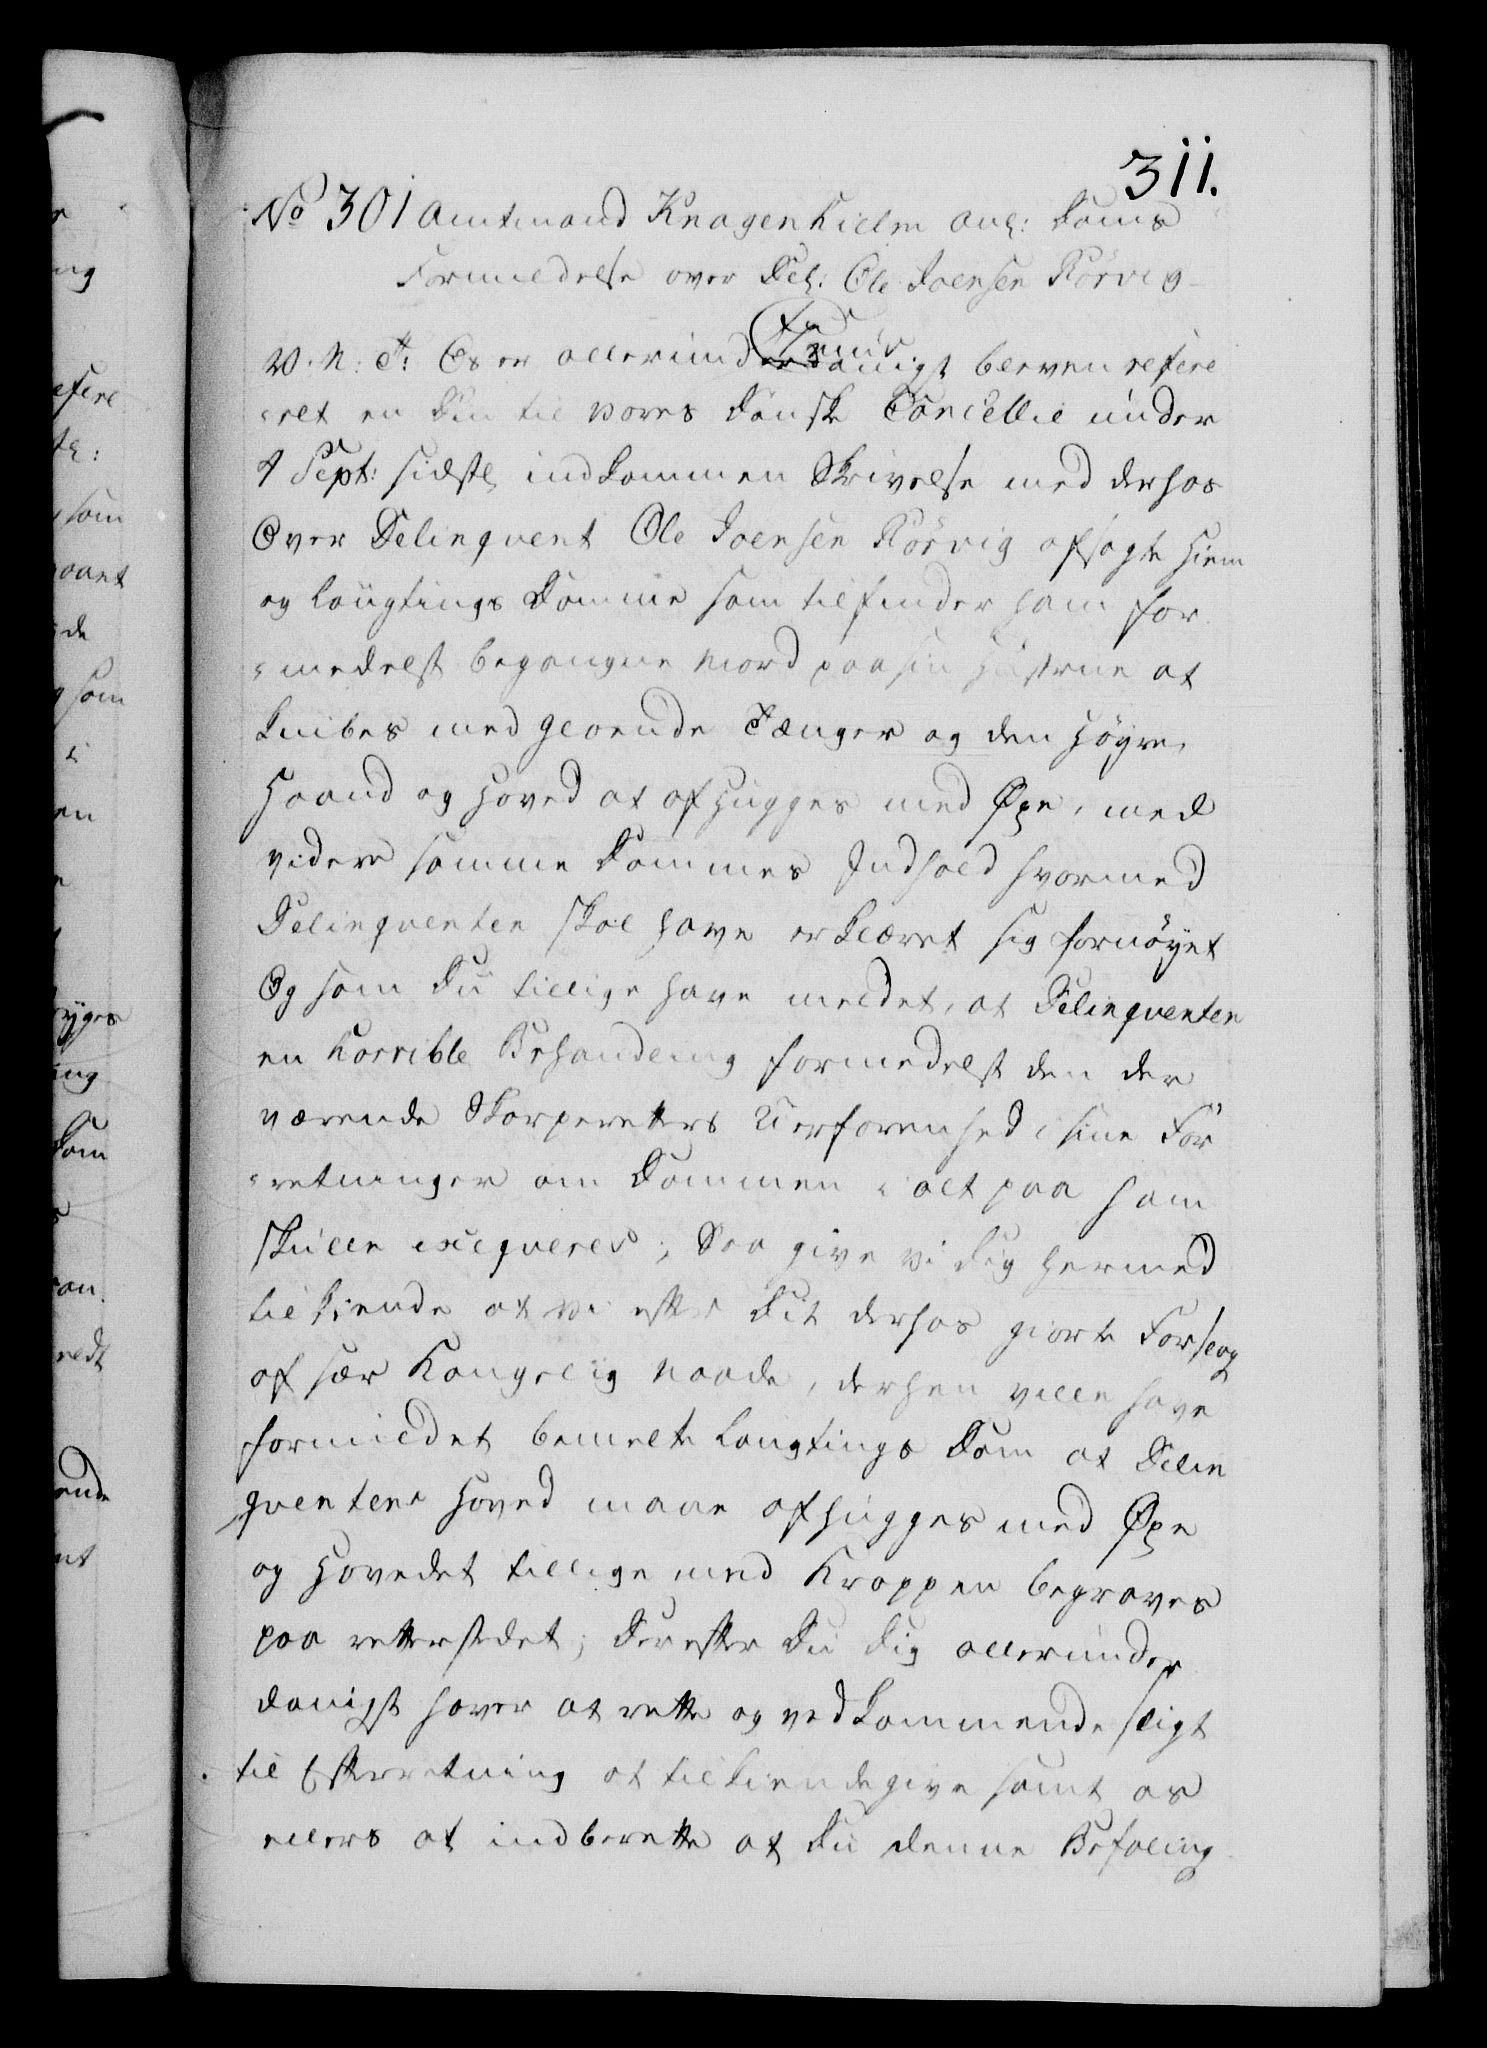 311.
No 301 Amtmand Knagenhielm anl: Doms
Formildelse over Del: Ole Joensen Rörvig
V. N: T: Os er allerunderdanigst bleven refere
ret en Din til vores Danske Cancellie under
4 Sept: sidstl indkommen Skrivelse med derhos
Over Delinqvent Ole Joensen Rörvig afsagte Hiem
og Laugtings Domme som tilfinder ham for
medelst begangne Mord paa sin Hustrue at
knibes med gloende Tænger og den Høyre
Haand og Hoved at afhugges med Øxe, med
videre samme Dommes Indhold hvormed
Delinqventen skal have erklæret sig fornöyet
Og som Du tillige have meldet, at Delinqventen
en horrible Behandling formedelst den der
værende Skarpretters Uerfarenhed i sine For
retninger om Dommen i alt paa ham
skulle exeqveres; Saa give vi Dig hermed
tilkiende at vi efter Dit derhos giorte Forslag
af sær Kongelig Naade, derhen ville have
formildet bemelte Laugtings Dom at Delin
qventens Hoved maae afhugges med Øxe
og Hovedet tillige med Kroppen begraves
paa retterstedet; Derefter Du Dig allerunder
danigst haver at rette og vedkommende sligt
til Efterretning at tilkiendegive samt os
ellers at indberette at Du denne Befaling